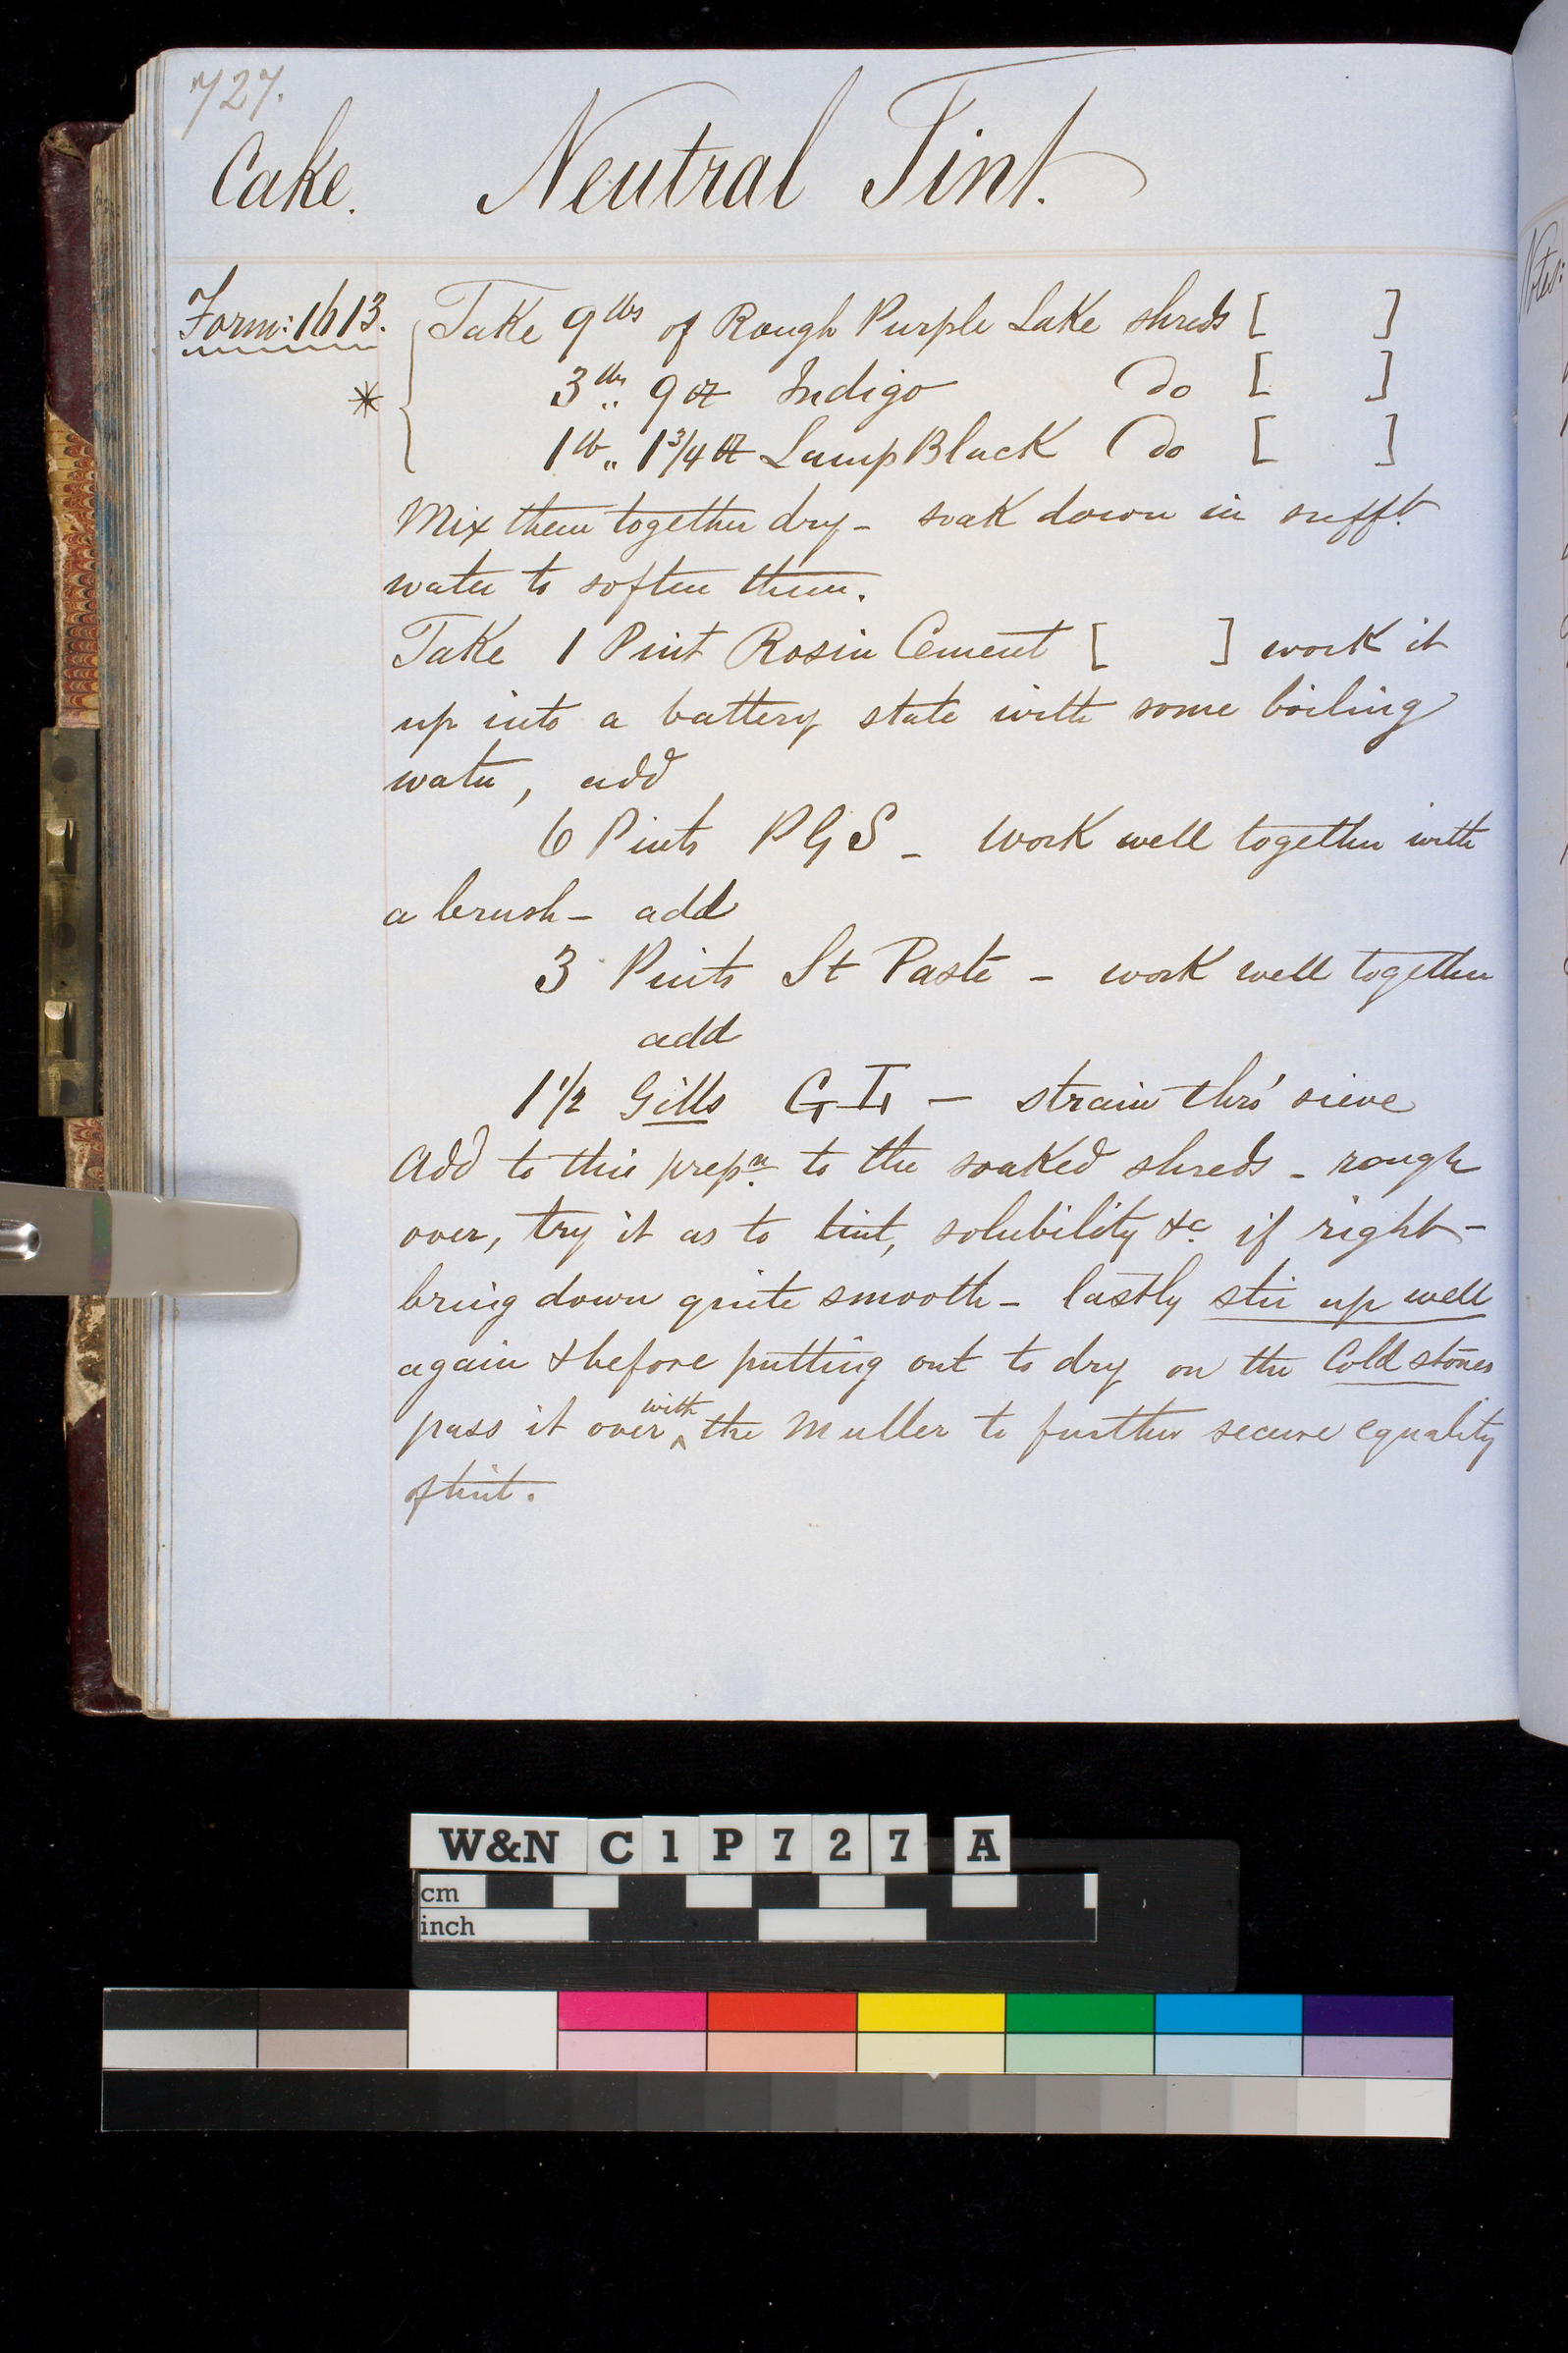 727.
Cake. Neutral Tint.
Form: 1613. Take 9 lbs of Rough Purple Lake shreds [ ]
* 3 lbs.. 9 oz Indigo Do [ ]
1 lb.. 1 3/4 oz Lamp Black Do [ ]
Mix them together dry - soak down in sufft
water to soften them.
Take 1 Pint Rosin Cement [ ] work it
up into a battery state with some boiling
water, add
6 Pints P G S - Work well together with
a brush - add
3 Pints St Paste - work well together
add
1 1/2 Gills - strain thro' sieve
Add to this prepn to the soaked shreds - rough
over, try it as to tint, solubility &c if right -
bring down quite smooth - lastly stir up well
again & before putting out to dry on the Cold stones
pass it over with the Muller to further secure equality
of tint.
Notes:
W&N C1P727 A
cm
inch